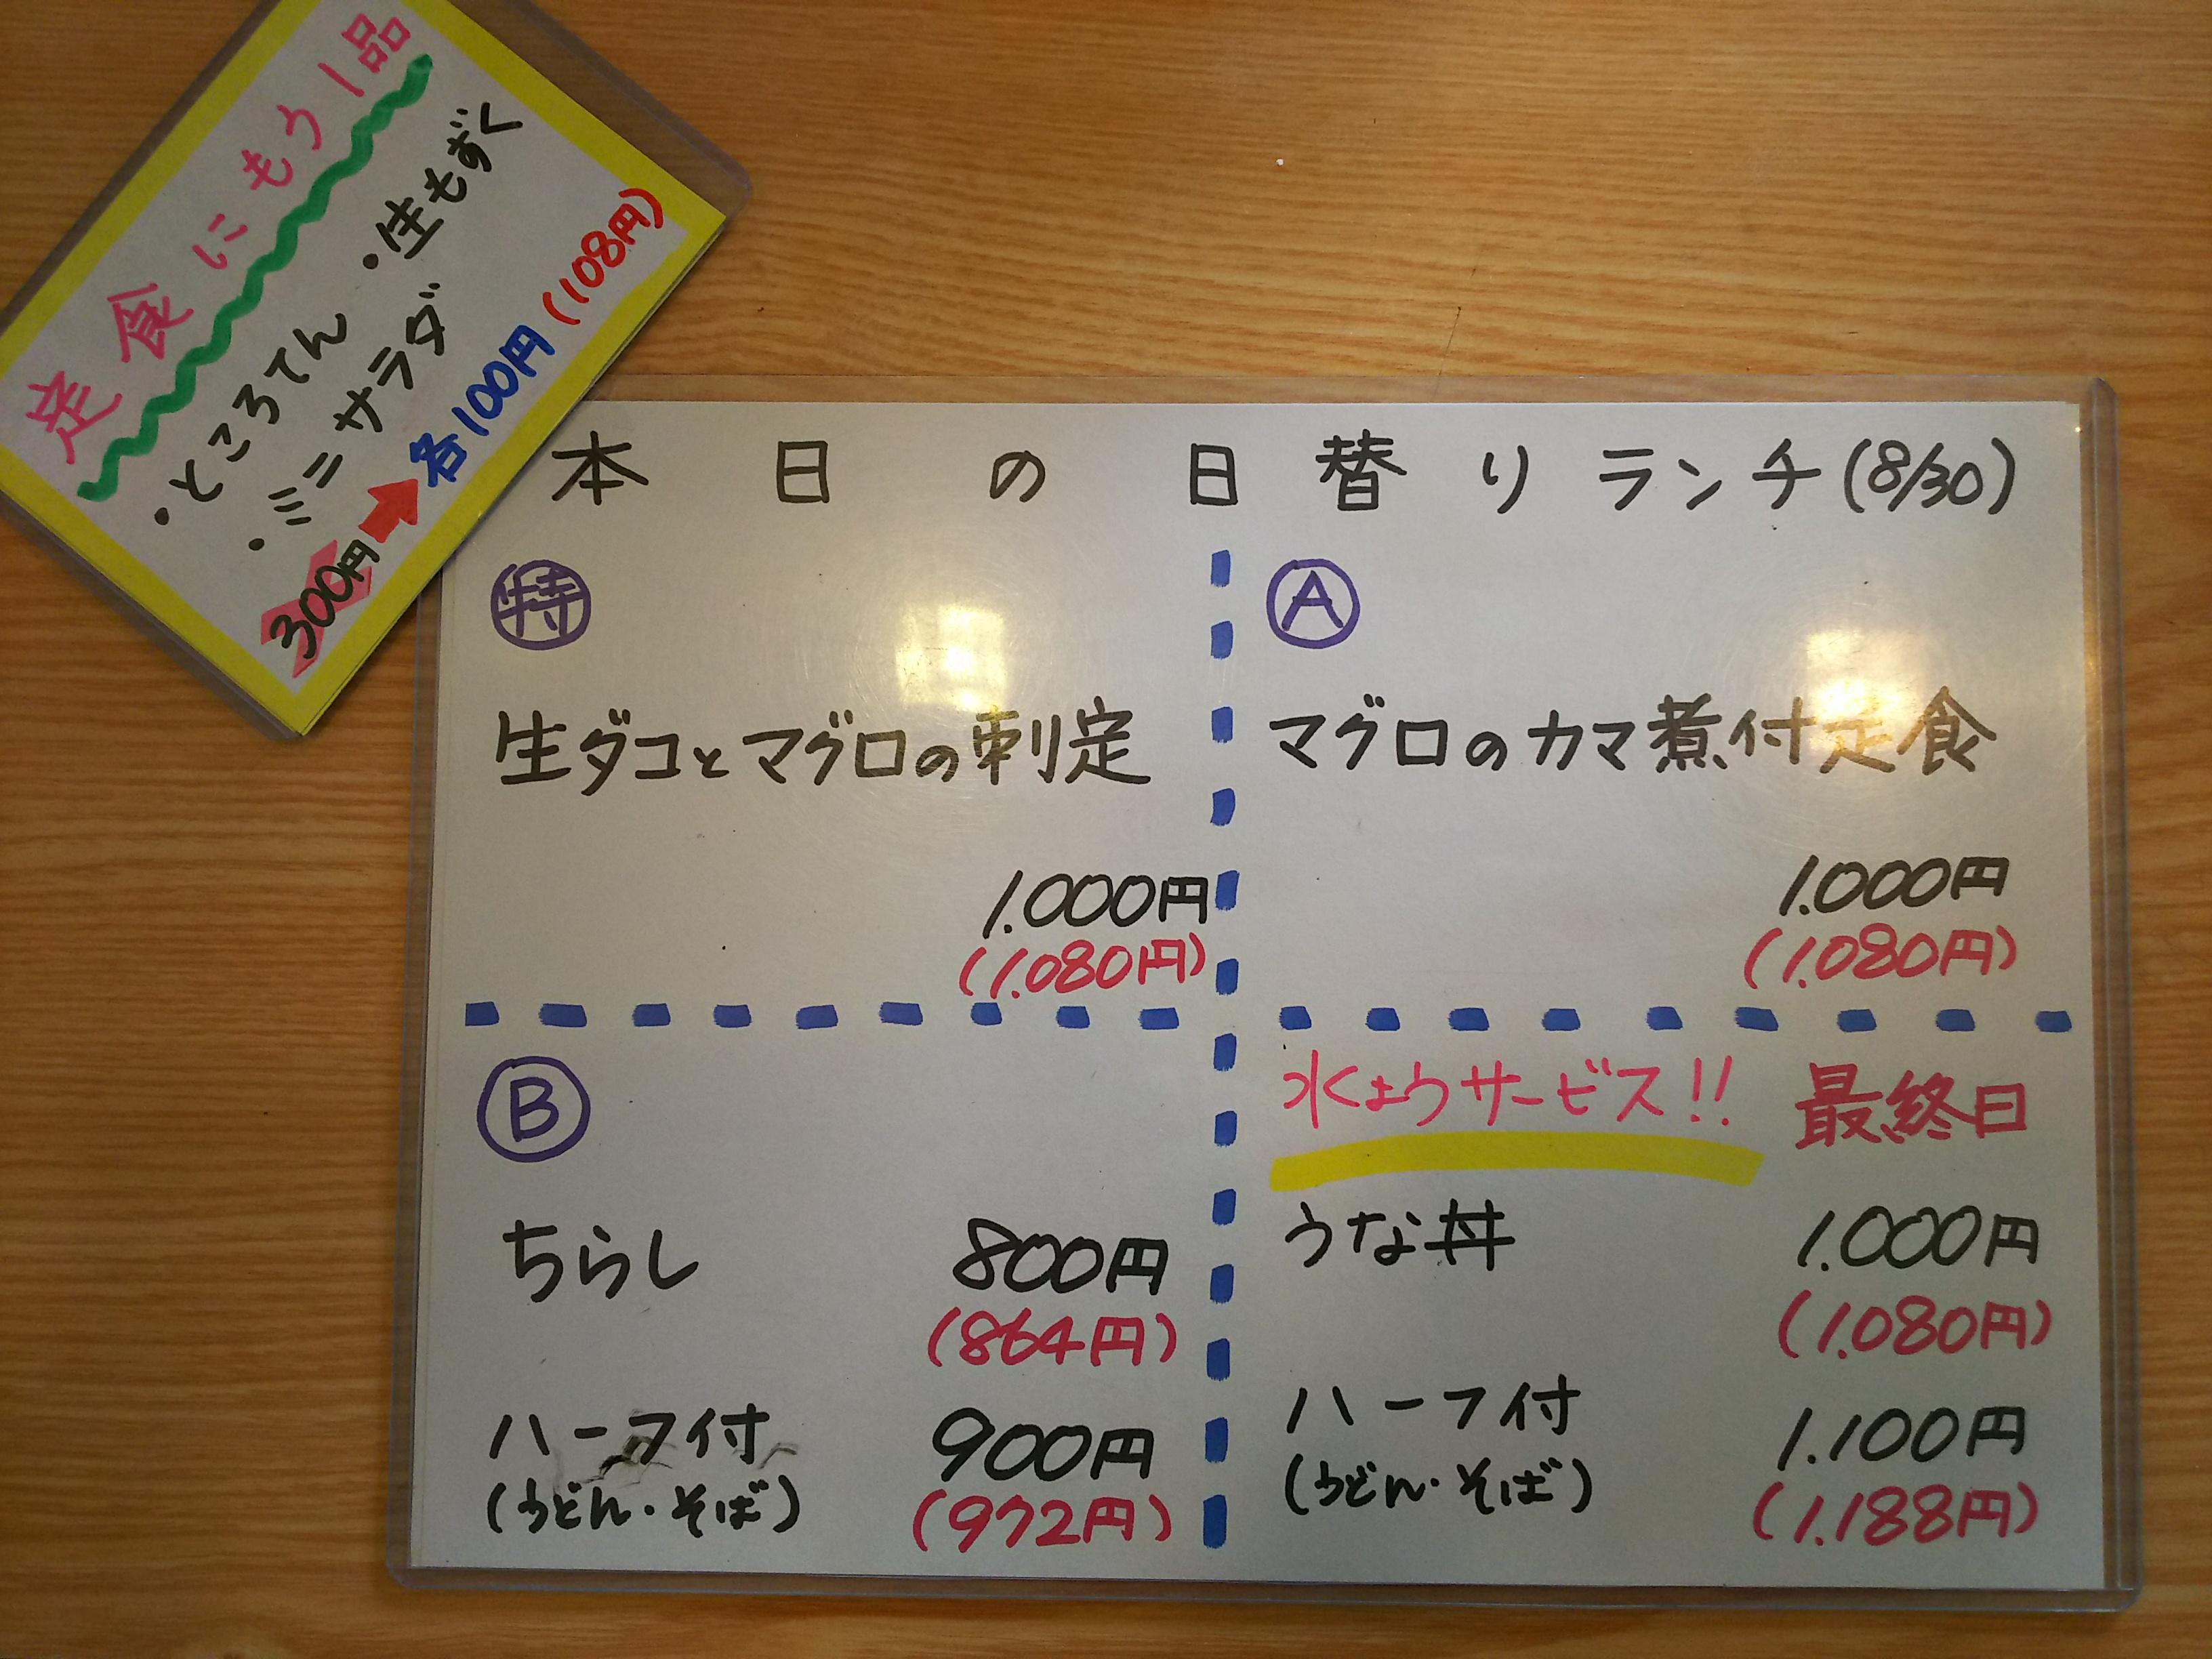 定食にもう1品
・ところてん ・生もずく
・ミニサラダ
300円➡各100円(108円)
本日の日替りランチ(8/30)
特
生ダコとマグロの刺定
1.000円
(1.080円)
A
マグロのカマ煮付定食
1.000円
(1.080円)
B
ちらし 800円
(864円)
ハーフ付 900円
(うどん・そば) (972円)
水ようサービス!! 最終日
うな丼 1.000円
(1.080円)
ハーフ付 1.100円
(うどん・そば) (1.188円)